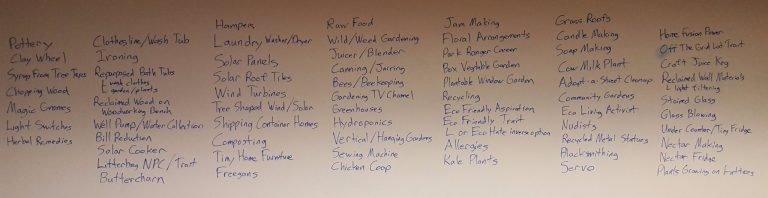 Pottery
Clay Wheel
Syrup From Tree Taps
Chopping Wood
Magic Gnomes
Light Switches
Herbal Remedies
Clothesline/Wash Tub
Ironing
Repurposed Bath Tubs
L wash clothes
L garden/plants
Reclaimed Wood on
Woodworking Bench
Well Pump/Water Collection
Bill Reduction
Solar Cooker
Litterbug NPC/Trait
Butterchurn
Hampers
Laundry Washer/Dryer
Solar Panels
Solar Roof Tiles
Wind Turbines
Tree Shaped Wind/Solar
Shipping Container Homes
Composting
Tiny Home Furniture
Freegans
Raw Food
Wild/Weed Gardening
Juicer/Blender
Canning/Jarring
Bees/Beekeeping
Gardening TV Channel
Greenhouses
Hydroponics
Vertical/Hanging Gardens
Sewing Machine
Chicken Coop
Jam Making
Floral Arrangements
Park Ranger Career
Box Vegetable Garden
Plantable Window Garden
Recycling
Eco Friendly Aspiration
Eco Friendly Trait
L or Eco Hate inverse option
Allergies
Kale Plants
Grass Roofs
Candle Making
Soap Making
Cow/Milk Plant
Adopt-a-Street Cleanup
Community Gardens
Eco Living Activist
Nudists
Recycled Metal Statues
Blacksmithing
Servo
Home Fusion Power
Off The Grid Lot Trait
Craft Juice Keg
Reclaimed Wall Materials
L light filtering
Stained Glass
Glass Blowing
Under Counter/Tiny Fridge
Nectar Making
Nectar Fridge
Plants Growing on Lattices